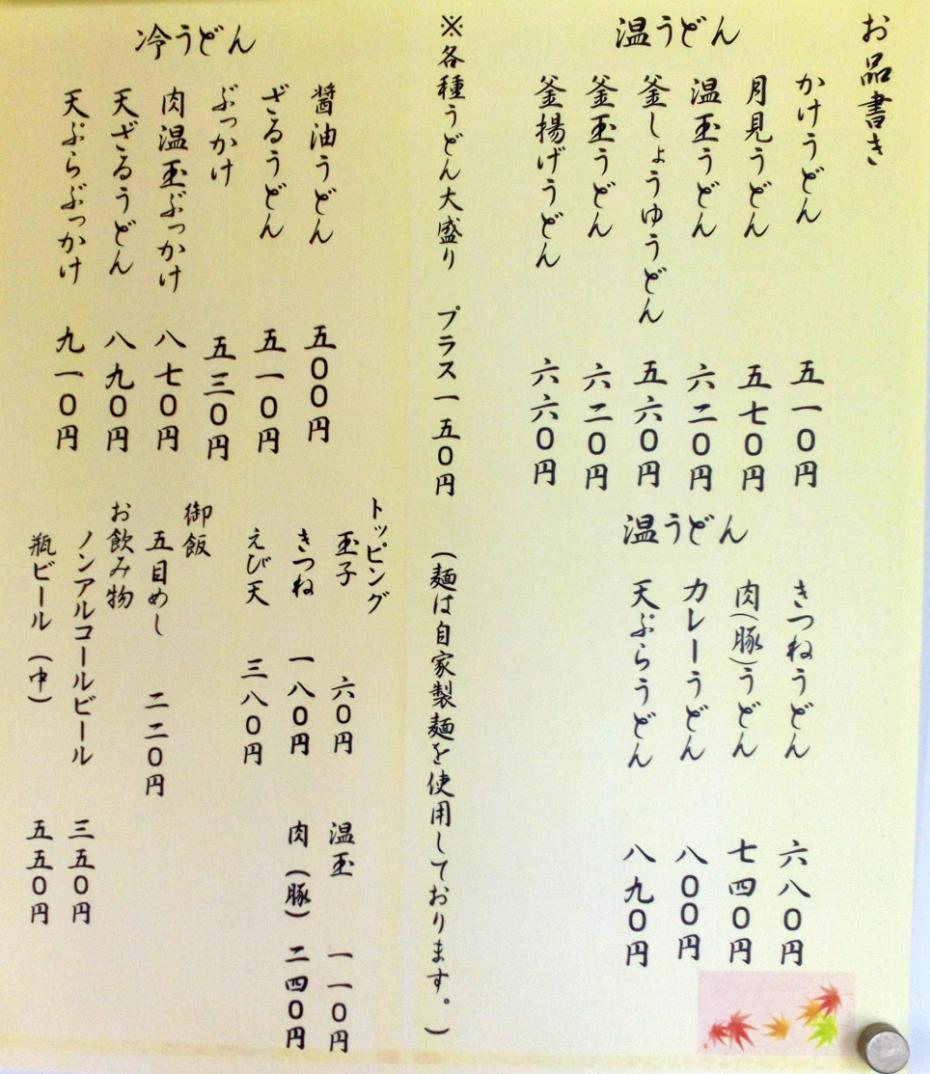 お品書き
温うどん
かけうどん 五一〇円
月見うどん 五七〇円
温玉うどん 六二〇円
釜しょうゆうどん 五六〇円
釜玉うどん 六二〇円
釜揚げうどん 六六〇円
温うどん
きつねうどん 六八〇円
肉(豚)うどん 七四〇円
カレーうどん 八〇〇円
天ぷらうどん 八九〇円
※各種うどん大盛り プラス一五〇円 (麺は自家製麺を使用しております。)
冷うどん
醤油うどん 五〇〇円
ざるうどん 五一〇円
ぶっかけ 五三〇円
肉温玉ぶっかけ 八七〇円
天ざるうどん 八九〇円
天ぷらぶっかけ 九一〇円
トッピング
玉子 六〇円 温玉 一一〇円
きつね 一八〇円 肉(豚) 二四〇円
えび天 三八〇円
御飯
五目めし 二二〇円
お飲み物
ノンアルコールビール 三五〇円
瓶ビール(中) 五五〇円